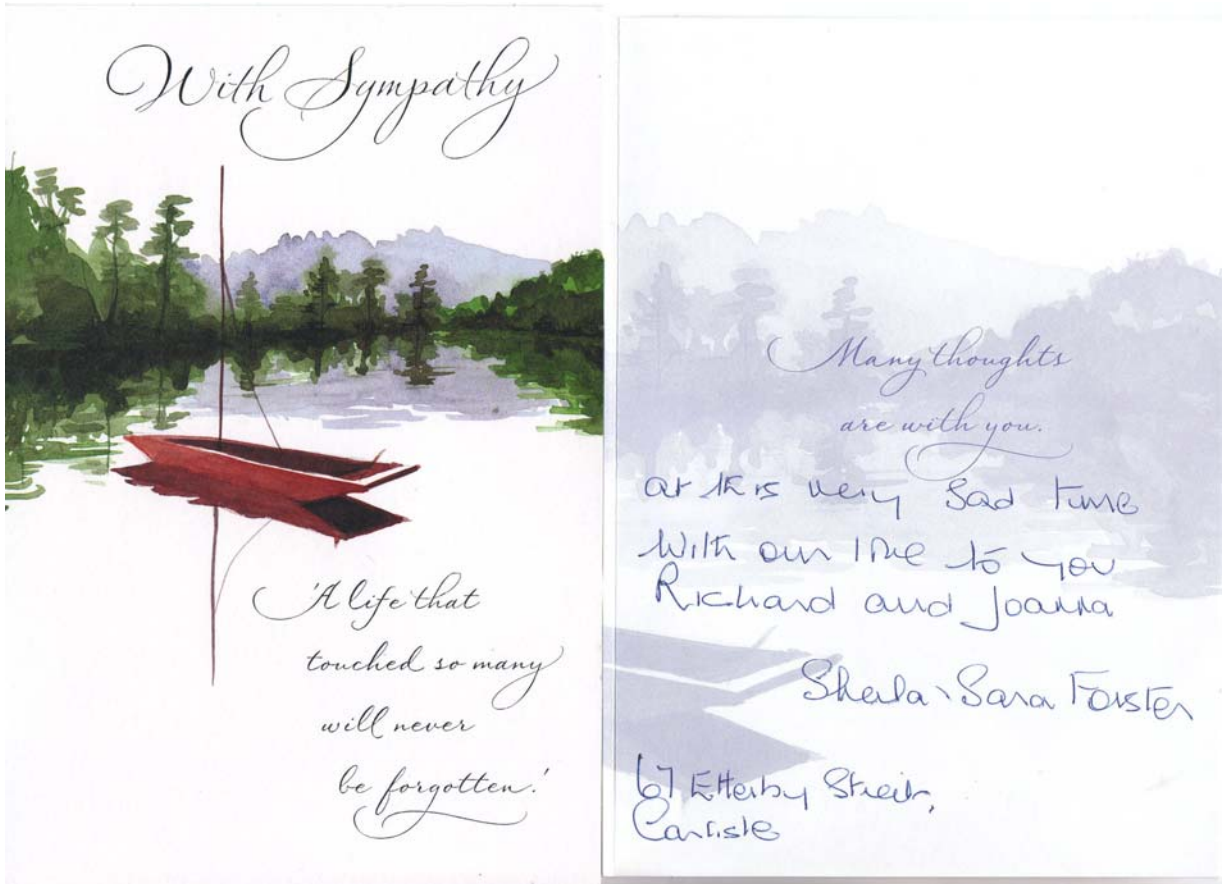 With Sympathy
'A life that
touched so many
will never
be forgotten.'
Many thoughts
are with you.
at this very sad time
With our love to you
Richard and Joanna
Sheila & Sara Forster
67 Etterby Street,
Carlisle